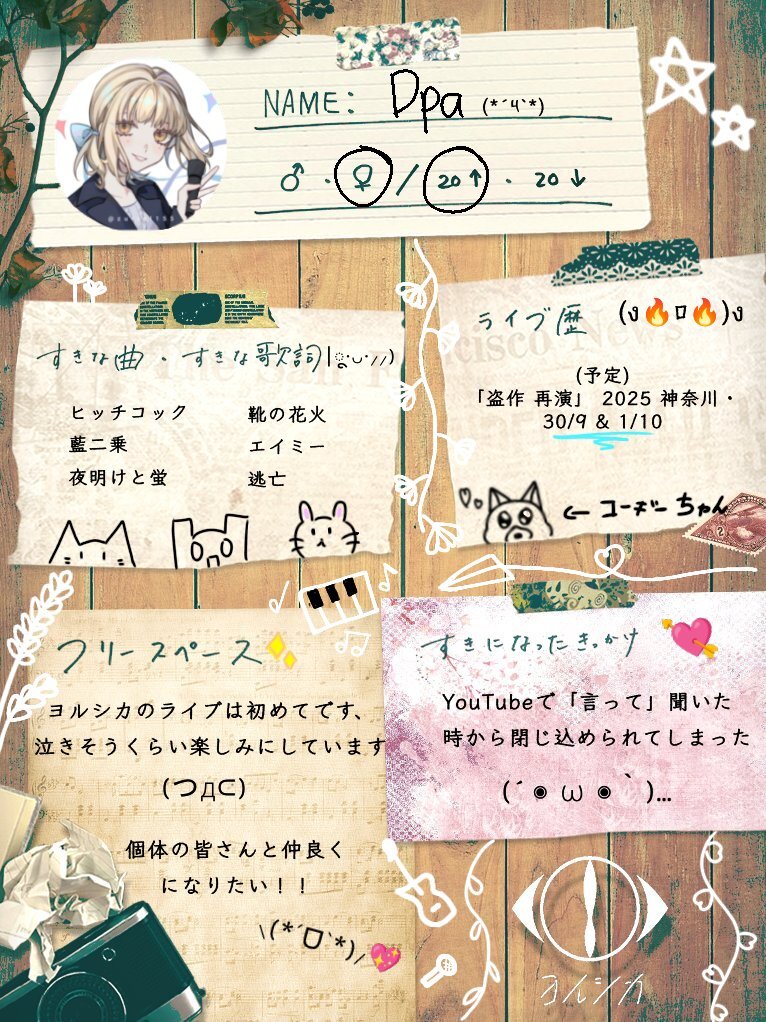 NAME: Dpa (*´ч`*)
♂ · ♀ / 20↑ · 20↓
すきな曲・すきな歌詞
ヒッチコック 靴の花火
藍二乗 エイミー
夜明けと蛍 逃亡
ライブ歴 (ง🔥ロ🔥)ง
(予定)
「盗作 再演」 2025 神奈川・
30/9 & 1/10
← コーギーちゃん
フリースペース✨
ヨルシカのライブは初めてです、
泣きそうくらい楽しみにしています
(つд⊂)
個体の皆さんと仲良く
になりたい！！
\(*ˊᗜˋ*)/💖
すきになったきっかけ 💘
YouTubeで「言って」聞いた
時から閉じ込められてしまった
(´◉ω◉｀)…
ヨルシカ